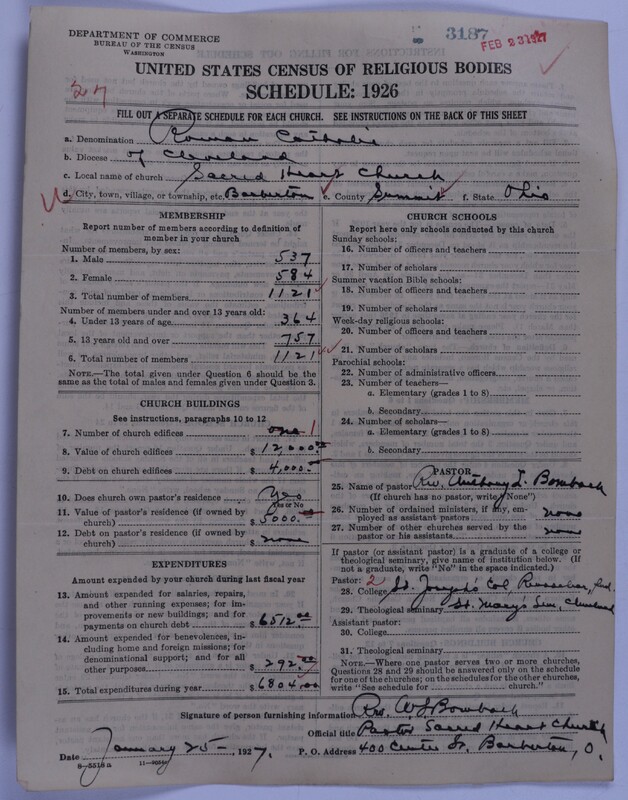 DEPARTMENT OF COMMERCE
BUREAU OF THE CENSUS
WASHINGTON
3187
FEB 23 1927
UNITED STATES CENSUS OF RELIGIOUS BODIES
SCHEDULE: 1926
27
FILL OUT A SEPARATE SCHEDULE FOR EACH CHURCH. SEE INSTRUCTIONS ON THE BACK OF THIS SHEET
a. Denomination Roman Catholic
b. Diocese of Cleveland
c. Local name of church Sacred Heart Church
d. City, town, village, or township, etc. Barberton e. County Summit f. State Ohio
MEMBERSHIP
Report number of members according to definition of
member in your church
Number of members, by sex:
1. Male 537
2. Female 584
3. Total number of members 1121
Number of members under and over 13 years old:
4. Under 13 years of age 364
5. 13 years old and over 757
6. Total number of members 1121
NOTE.—The total given under Question 6 should be
the same as the total of males and females given under Question 3.
CHURCH BUILDINGS
See instructions, paragraphs 10 to 12
7. Number of church edifices one 1
8. Value of church edifices $ 12,000.00
9. Debt on church edifices $ 4,000.
10. Does church own pastor's residence Yes
Yes or No
11. Value of pastor's residence (if owned by
church) $ 5000.
12. Debt on pastor's residence (if owned by
church) $ none
EXPENDITURES
Amount expended by your church during last fiscal year
13. Amount expended for salaries, repairs,
and other running expenses; for im-
provements or new buildings; and for
payments on church debt $ 6512.00
14. Amount expended for benevolences, in-
cluding home and foreign missions; for
denominational support; and for all
other purposes $ 292.00
15. Total expenditures during year $ 6804.00
CHURCH SCHOOLS
Report here only schools conducted by this church
Sunday schools:
16. Number of officers and teachers
17. Number of scholars
Summer vacation Bible schools:
18. Number of officers and teachers
19. Number of scholars
Week-day religious schools:
20. Number of officers and teachers
21. Number of scholars
Parochial schools:
22. Number of administrative officers
23. Number of teachers—
a. Elementary (grades 1 to 8)
b. Secondary
24. Number of scholars—
a. Elementary (grades 1 to 8)
b. Secondary
PASTOR
25. Name of pastor Rev. Anthony L. Bombach
(If church has no pastor, write "None")
26. Number of ordained ministers, if any, em-
ployed as assistant pastors none
27. Number of other churches served by the
pastor or his assistants none
If pastor (or assistant pastor) is a graduate of a college or
theological seminary, give name of institution below. (If
not a graduate, write "No" in the space indicated.)
Pastor: 2
28. College St. Joseph's Col, Ind.
29. Theological seminary St. Mary's Sem, Cleveland
Assistant pastor:
30. College
31. Theological seminary
NOTE.—Where one pastor serves two or more churches,
Questions 28 and 29 should be answered only on the schedule
for one of the churches; on the schedules for the other churches,
write "See schedule for church."
Signature of person furnishing information Rev. A L Bombach
Official title Pastor Sacred Heart Church
Date January 25-, 1927. P. O. Address 400 Center St. Barberton, O.
8-5518a